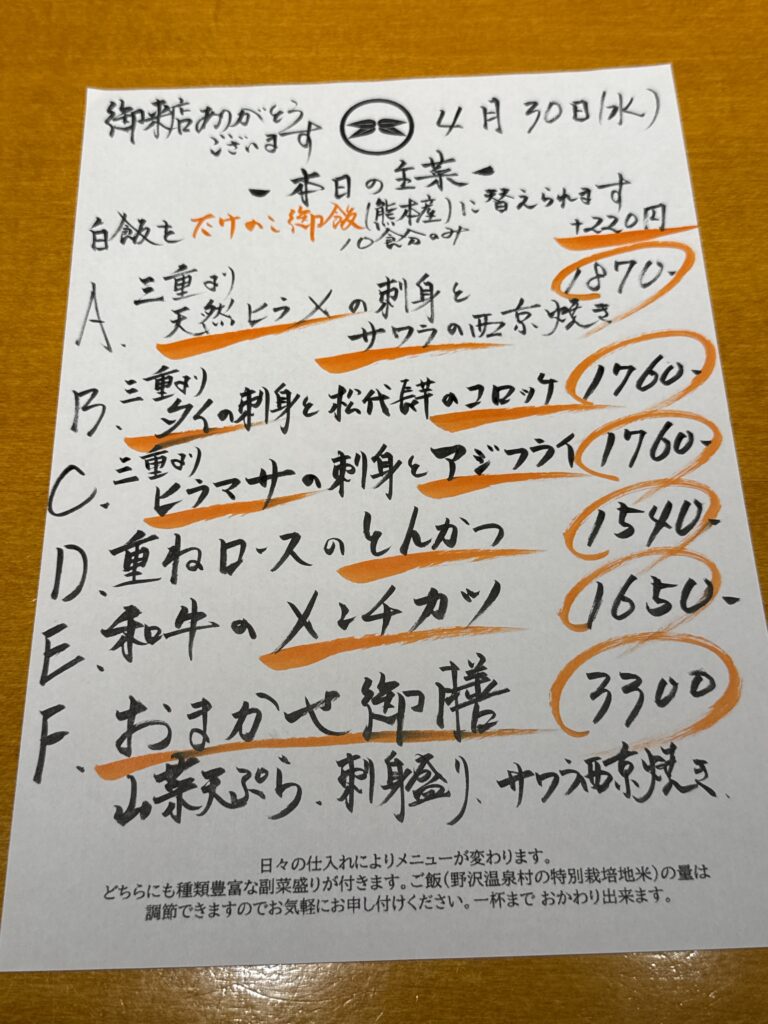 御来店ありがとう
ございます
4月30日(水)
- 本日の主菜 -
白飯をたけのこ御飯(熊本産)に替えられます
10食分のみ
+220円
A. 三重より
天然ヒラメの刺身と
サワラの西京焼き
1870-
B. 三重より
タイの刺身と松代長芋のコロッケ 1760-
C. 三重より
ヒラマサの刺身とアジフライ 1760-
D. 重ねロースのとんかつ 1540-
E. 和牛のメンチカツ 1650-
F. おまかせ御膳 3300
山菜天ぷら、刺身盛り、サワラ西京焼き、
日々の仕入れによりメニューが変わります。
どちらにも種類豊富な副菜盛りが付きます。ご飯(野沢温泉村の特別栽培地米)の量は
調節できますのでお気軽にお申し付けください。一杯まで おかわり出来ます。